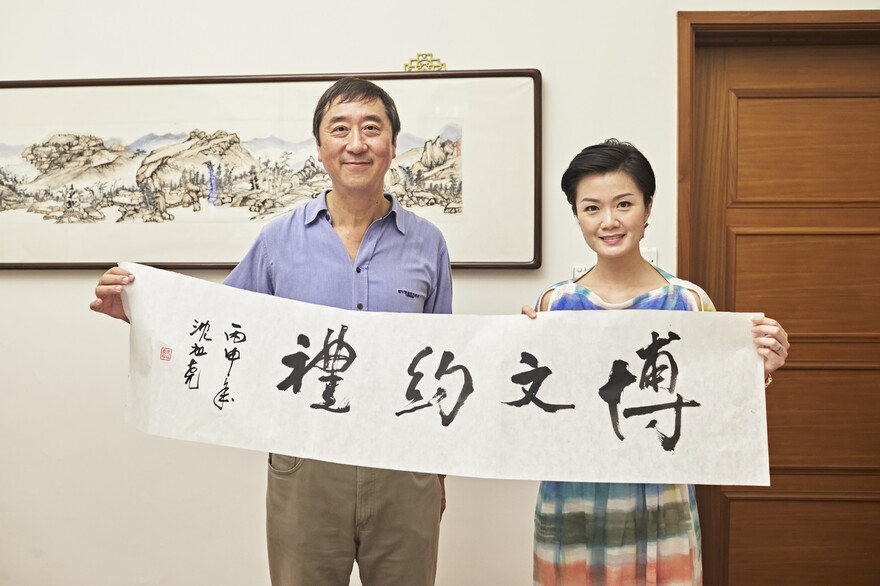 博文約禮
丙申年
沈祖堯